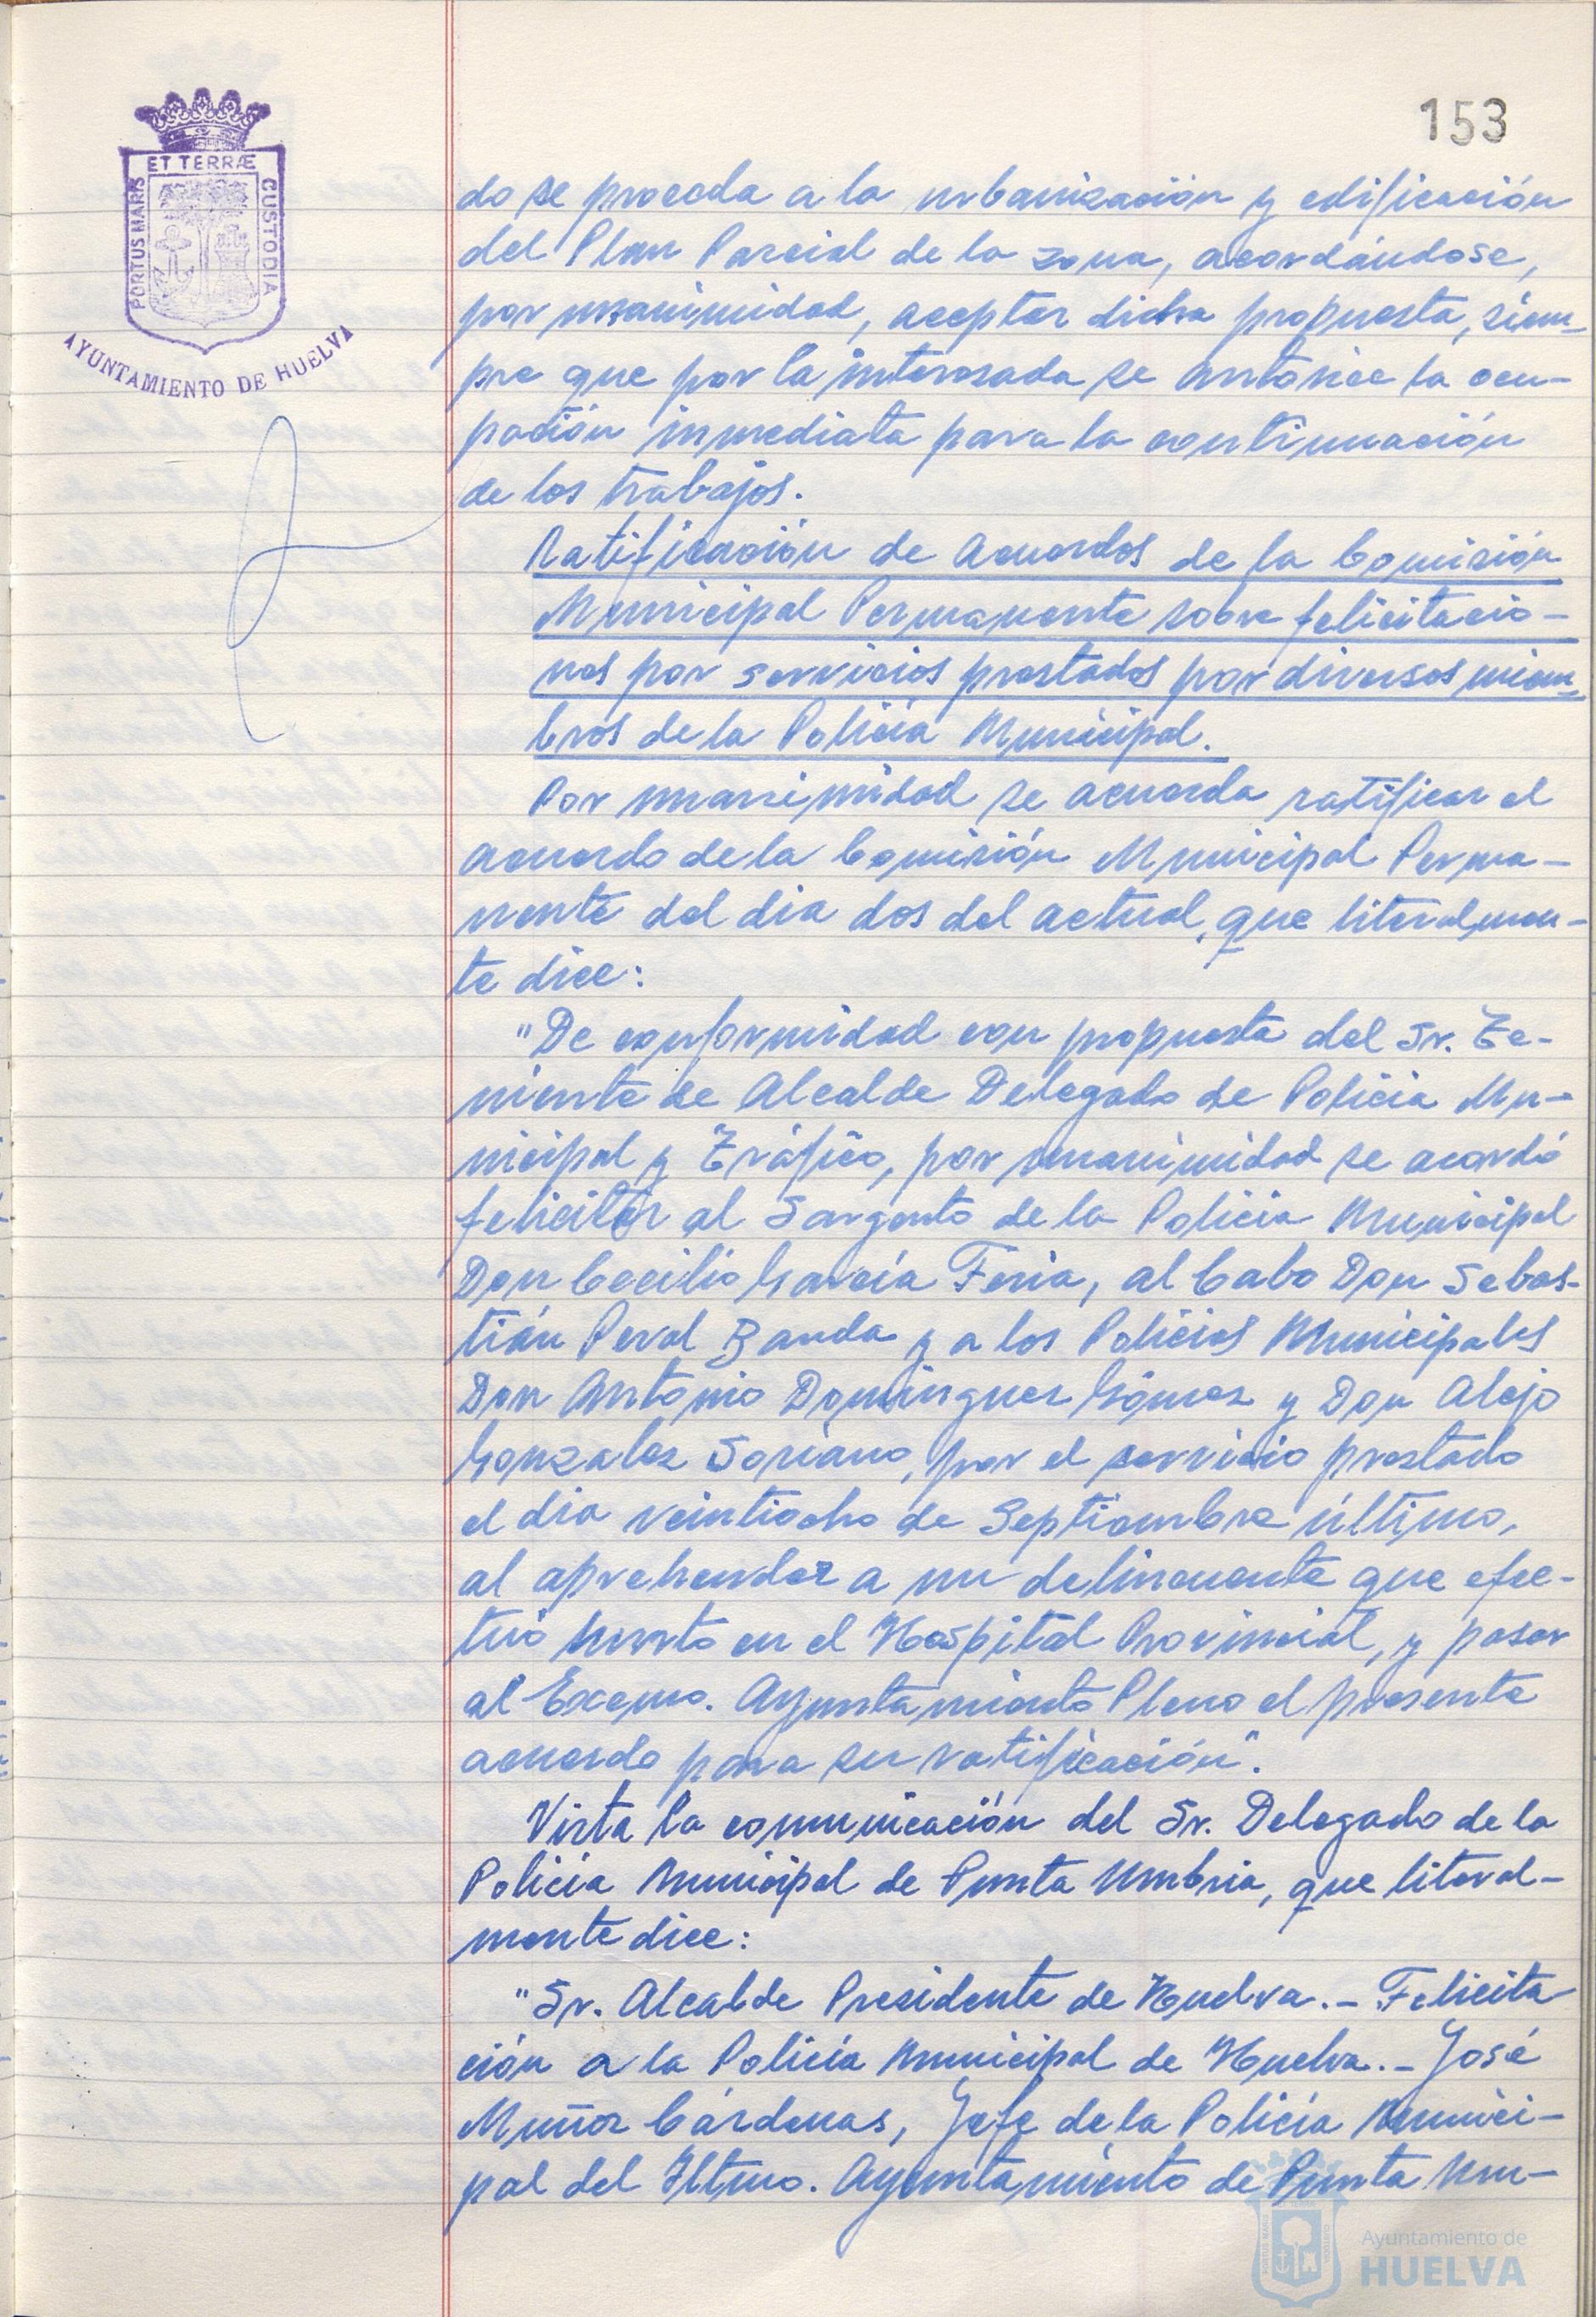 153
ET TERRÆ
PORTUS MARIS
CUSTODIA
AYUNTAMIENTO DE HUELVA
do se proceda a la urbanización y edificación
del Plan Parcial de la zona, acordándose,
por unanimidad, aceptar dicha propuesta, siem-
pre que por la interesada se autorice la ocu-
pación inmediata para la continuación
de los trabajos.
Ratificación de acuerdos de la Comisión
Municipal Permanente sobre felicitacio-
nes por servicios prestados por diversos miem-
bros de la Policía Municipal.
Por unanimidad se acuerda ratificar el
acuerdo de la Comisión Municipal Perma-
nente del dia dos del actual, que literalmen-
te dice:
"De conformidad con propuesta del Sr. Te-
niente de Alcalde Delegado de Policia Mu-
nicipal y Tráfico, por unanimidad se acordó
felicitar al Sargento de la Policia Municipal
Don Cecilio García Feria, al Cabo Don Sebas-
tián Peral Banda y a los Policias Municipales
Don Antonio Domínguez Gómez y Don Alejo
Gonzalez Soriano, por el servicio prestado
el dia veintiocho de Septiembre último,
al aprehender a un delincuente que efec-
tuó hurto en el Hospital Provincial, y pasar
al Excmo. Ayuntamiento Pleno el presente
acuerdo para su ratificación".
Vista la comunicación del Sr. Delegado de la
Policía Municipal de Punta Umbria, que literal-
mente dice:
"Sr. Alcalde Presidente de Huelva.- Felicita
ción a la Policía Municipal de Huelva.- José
Muñoz Cárdenas, Jefe de la Policía Munici-
pal del Iltmo. Ayuntamiento de Punta Um-
Ayuntamiento de
HUELVA